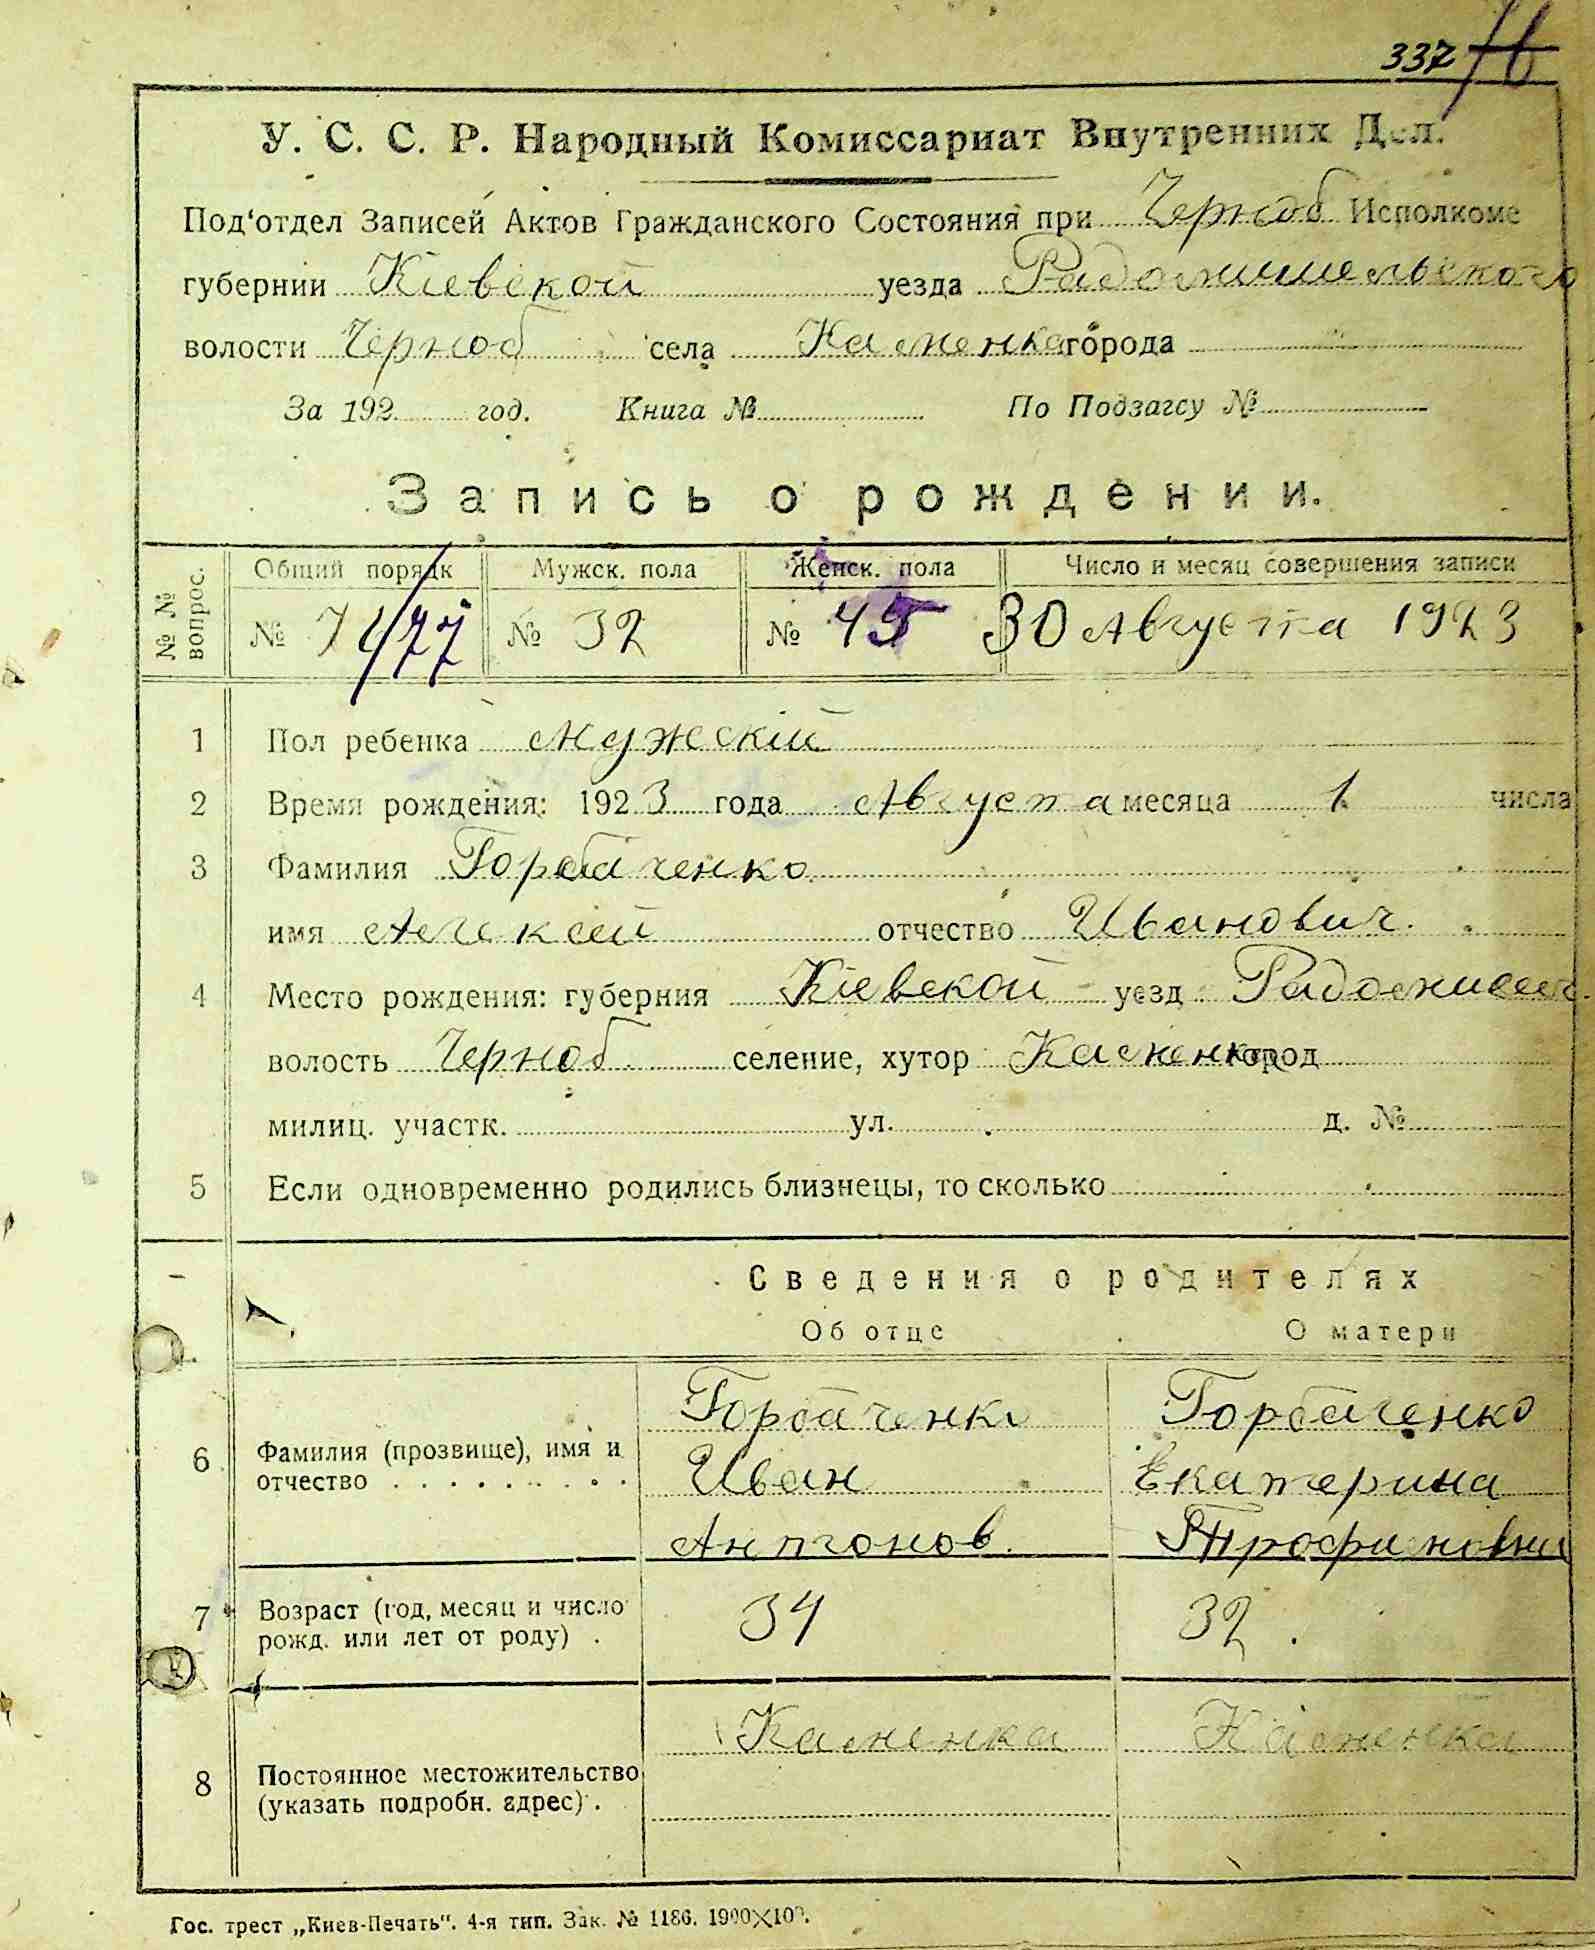 337
У. С. С. Р. Народный Комиссариат Внутренних Дел.
Под‘отдел Записей Актов Гражданского Состояния при Черноб Исполкоме
губернии Кіевской уезда Радомишельского
волости Черноб села Каменка города
За 192 год. Книга № По Подзагсу №
Запись о рождении.
№ № вопрос. Общий порядк Мужск. пола Женск. пола Число и месяц совершения записи
№ 77 № 32 № 45 30 Августа 1923
1 Пол ребенка мужскій
2 Время рождения: 1923 года Августа месяца 1 числа
3 Фамилия Горбаченко
имя Алексей отчество Иванович.
4 Место рождения: губерния Кіевской уезд Радомисль
волость Черноб селение, хутор Каменка город
милиц. участк. ул. д. №
5 Если одновременно родились близнецы, то сколько
Сведения о родителях
Об отце О матери
Горбаченко Горбаченко
6 Фамилия (прозвище), имя и отчество Иван Екатерина
Антонов. Трофимовна
7 Возраст (год, месяц и число рожд. или лет от роду) . 34 32.
Каменка Каменка
8 Постоянное местожительство
(указать подробн. адрес) .
Гос. трест „Киев-Печать“. 4-я тип. Зак. № 1186. 1900×100.